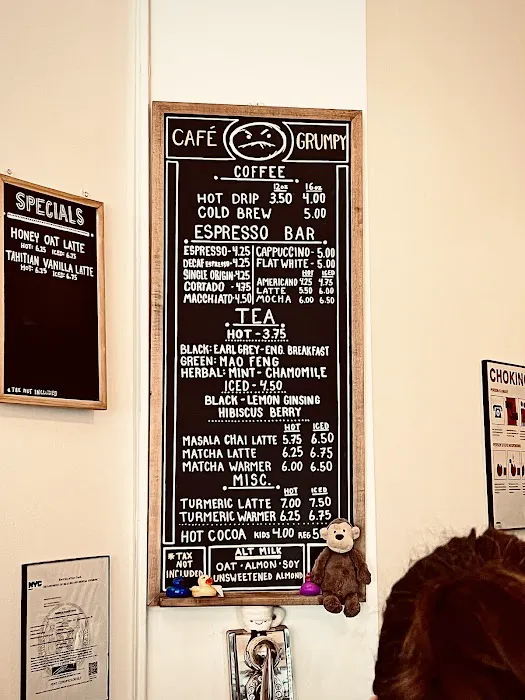 CAFÉ GRUMPY
COFFEE
12oz 16oz
HOT DRIP 3.50 4.00
COLD BREW 5.00
ESPRESSO BAR
ESPRESSO-4.25
DECAF ESPRESSO-4.25
SINGLE ORIGIN-4.25
CORTADO - 4.75
MACCHIATO-4.50
CAPPUCCINO- 5.00
FLAT WHITE - 5.00
HOT ICED
AMERICANO 4.25 4.75
LATTE 5.50 6.00
MOCHA 6.00 6.50
TEA
HOT - 3.75
BLACK: EARL GREY-ENG. BREAKFAST
GREEN: MAO FENG
HERBAL: MINT - CHAMOMILE
ICED - 4.50
BLACK - LEMON GINSING
HIBISCUS BERRY
HOT ICED
MASALA CHAI LATTE 5.75 6.50
MATCHA LATTE 6.25 6.75
MATCHA WARMER 6.00 6.50
MISC.
HOT ICED
TURMERIC LATTE 7.00 7.50
TURMERIC WARMER 6.25 6.75
HOT COCOA KIDS 4.00 REG 5
*TAX
NOT
INCLUDED
ALT MILK
OAT - ALMON - SOY
UNSWEETENED ALMOND
SPECIALS
HONEY OAT LATTE
HOT: 6.25 ICED: 6.75
TAHITIAN VANILLA LATTE
HOT: 6.25 ICED: 6.75
*TAX NOT INCLUDED
CHOKING
NYC